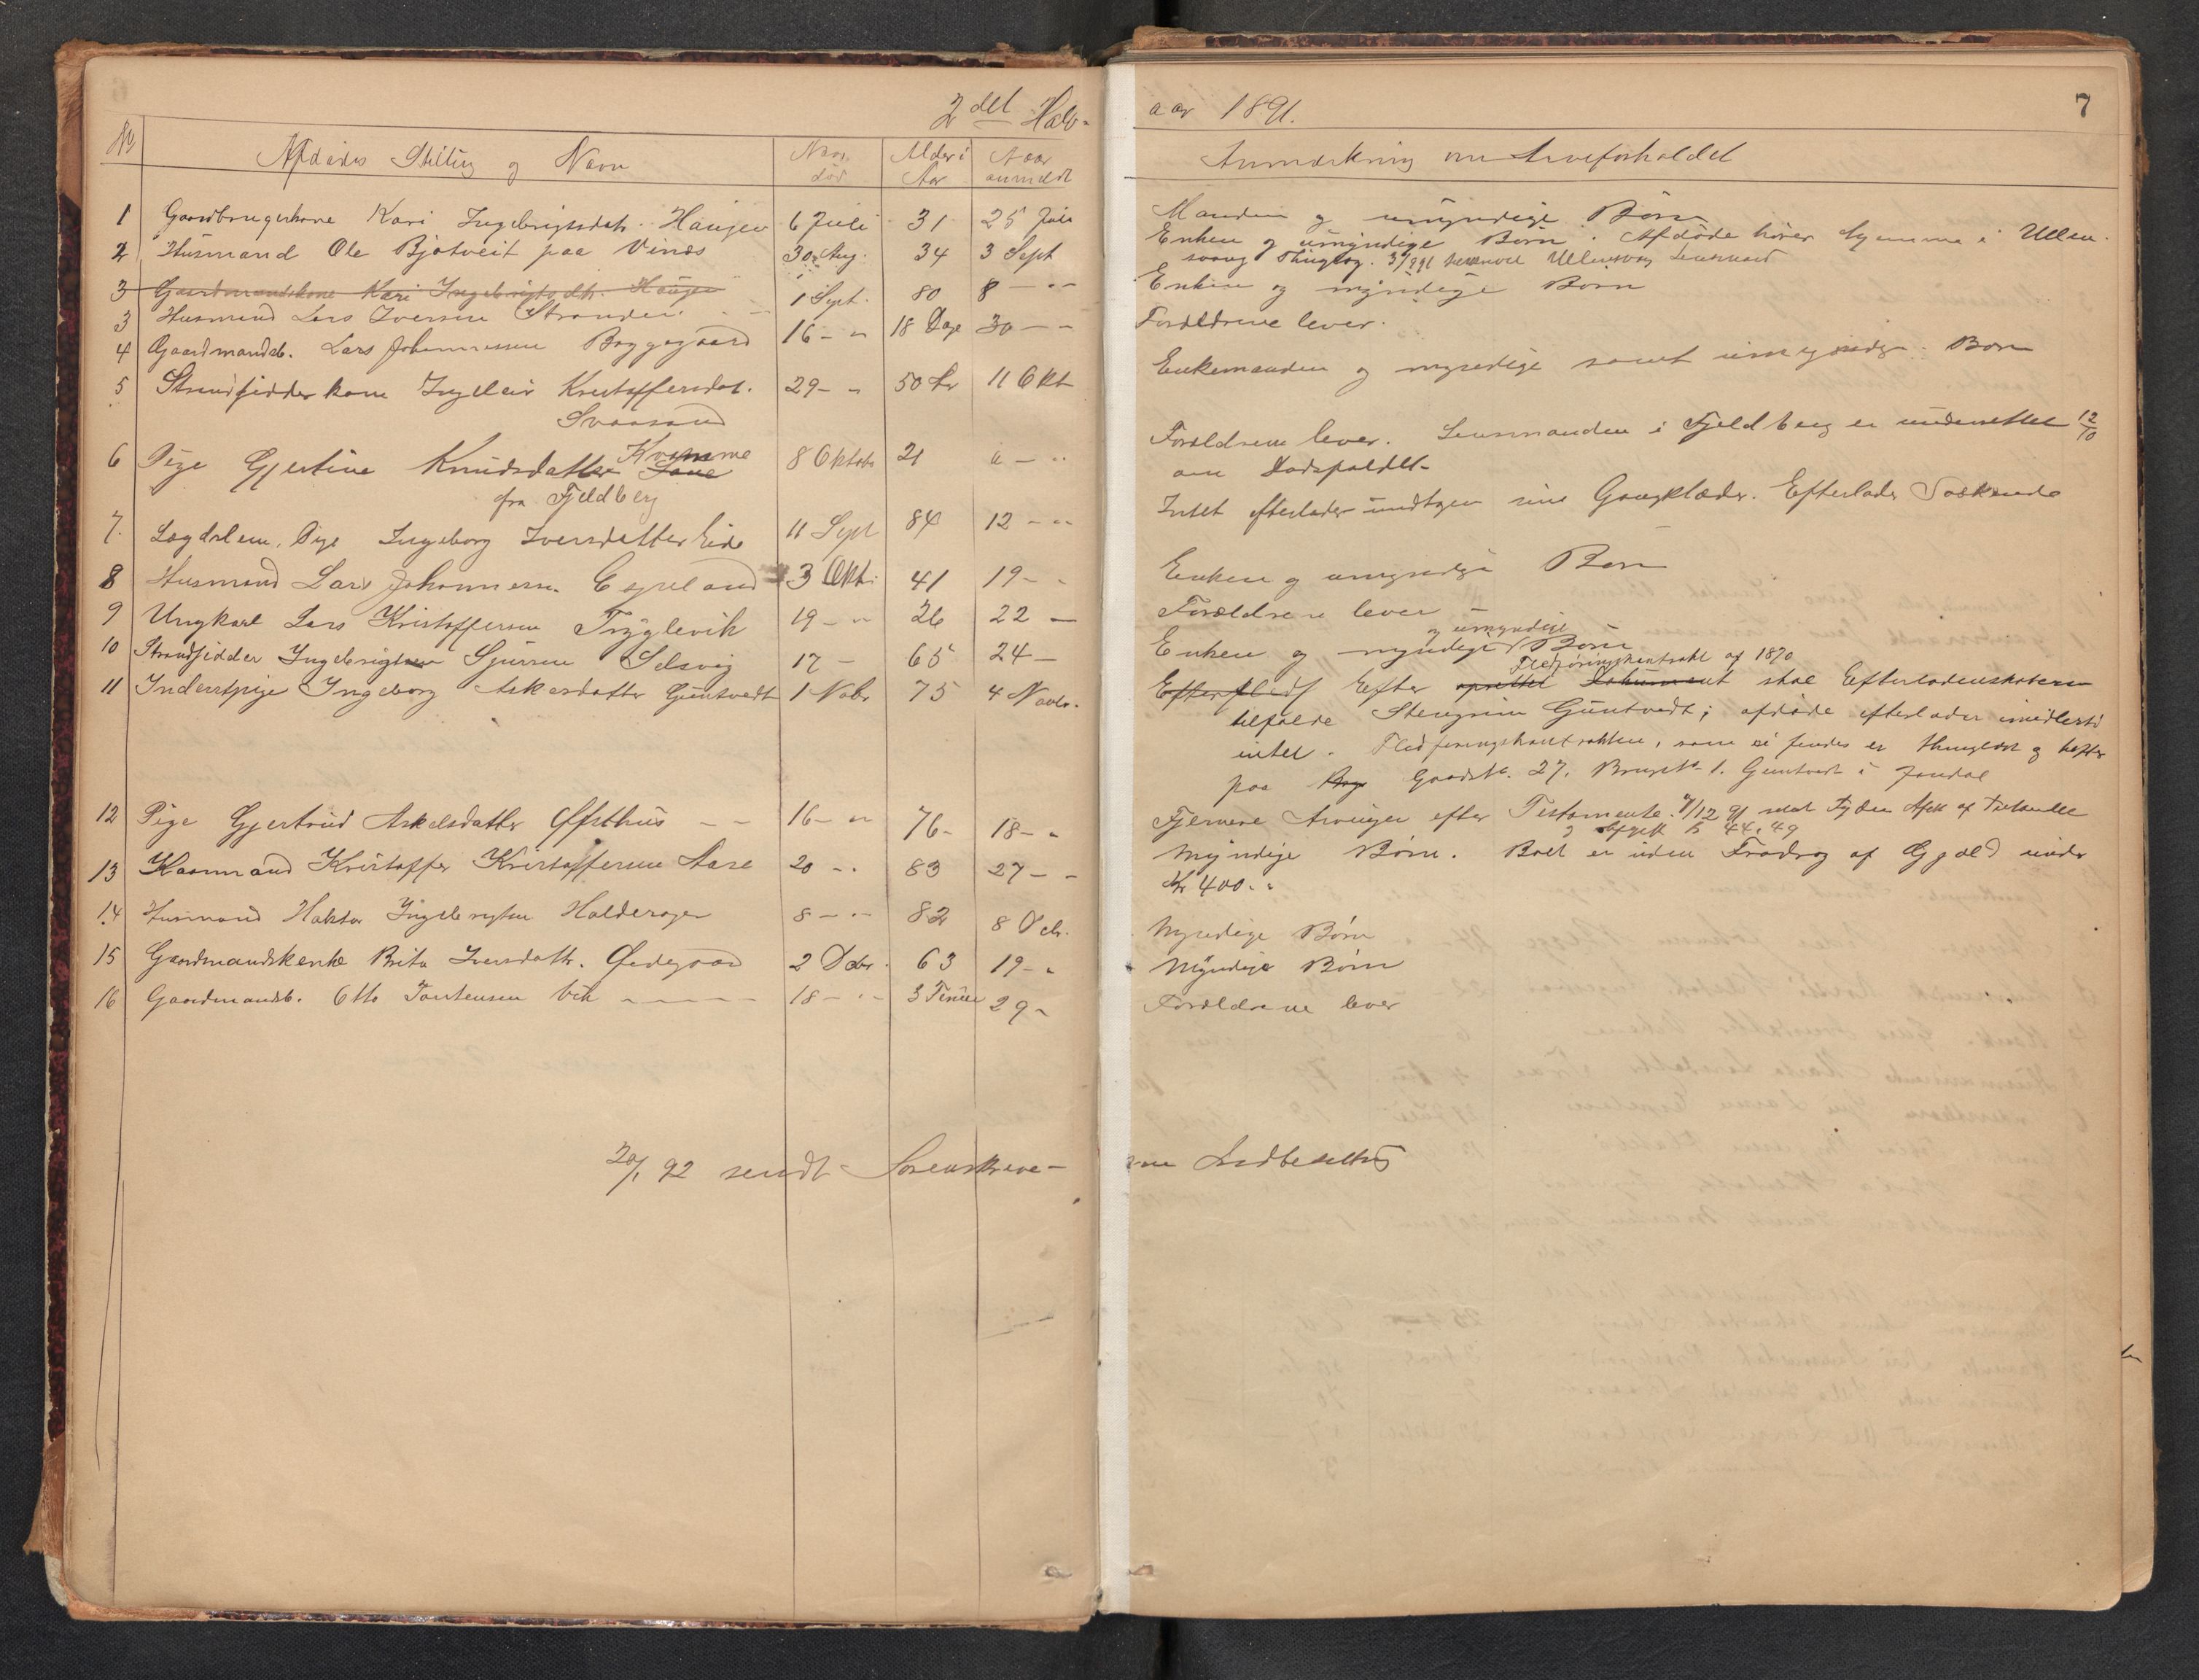 2det Halv-
No
Afdødes Stilling og Navn
Naar død
Alder i Aar
Naar anmeldt
1 Gaardbrugerkone Kari Ingebrigtsdatr. Haugen 6 Juli 31 25 Juli
2 Husmand Ole Bjotveit paa Vinæs 30 Aug. 34 3 Sept
3 Gaardmandskone Kari Ingebrigtsdtr. Haugen
3 Husmand Lars Iversen Stranden 1 Sept. 80 8 — "
4 Gaardmandsb. Lars Johannessen Byggegaard 16 — " 18 Dage 30 — "
5 Strandsidderkone Ingeleiv Kristoffersdat. 29 — " 50 Aar 11 Okt
Svaasand
6 Pige Gjertine Knudsdatter Kvamme 8 Oktobr 21 " — "
fra Fjeldberg
7. Lægdslem, Pige Ingeborg Iversdatter Eide 11 Sept 84 12 — "
8 Husmand Lars Johannessen Espeland 3 Okt. 41 19 — "
9 Ungkarl Lars Kristoffersen Tryglevik 19 — " 26 22 —
10 Strandsidder Ingebrigt Sjursen Selsvig 17 — 65 24 —
11 Inderstpige Ingeborg Askesdatter Guntvedt 1 Nobr 75 4 Novbr.
12 Pige Gjertrud Askelsdatter Øfsthus — — 16 — " 76 — 18 — "
13 Kaarmand Kristoffer Kristoffersen Aase 20 — " 83 27 — "
14 Husmand Haktor Ingebrigtsen Halderager 8 — " 82 8 Deb.
15 Gaardmandsenke Brita Iversdatr. Ødegaard 2 Debr. 63 19 — "
16 Gaardmandsb. Otto Torstensen Vik — — — — 18 — " 3 Timer 29 —
20/1 92 sendt Sorenskrive-
aar 1891.
7
Anmærkning om Arveforholdet
Manden og umyndige Børn
Enken og umyndige Børn. Afdøde hører hjemme i Ullen-
svang Thinglag. 3/9 91 Ullensvang Lensmand
Enken og myndige Børn
Forældrene lever.
Enkemanden og myndige samt umyndige Børn
Forældrene lever. Lensmanden i Fjeldberg er underrettet 12/10
om Dødsfaldet
Intet efterlader undtagen sine Gangklæder. Efterlader Søskende
Enken og umyndige Børn
Forældrene lever
og umyndige
Enken og myndige Børn
Fledføringskontrakt af 1870
Efter Efter oprettet Dokument skal Efterladenskaberne
tilfalde Stengrim Guntvedt; afdøde efterlader imidlertid
intet. Fledføringskontrakten, som ei findes er thinglæst og hefter
paa Gaards No. 27, Brugs No 1. Guntvedt i Jondal
Fjernere Arvinger efter Testamente. 9/12 91
Myndige Børn. Boet er uden Fradrag af Gjæld under
Kr 400. "
Myndige Børn
Myndige Børn
Forældrene lever
ren Indberetning